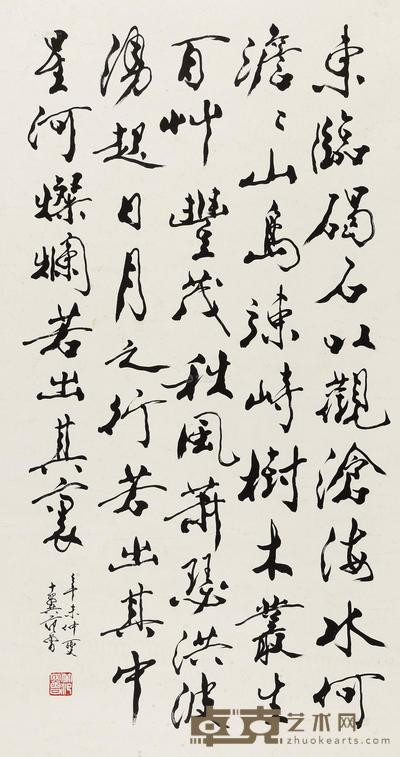 東臨碣石以觀滄海水何
澹〻山島竦峙樹木叢生
百艸豐茂秋風蕭瑟洪波
湧起日月之行若出其中
星河燦爛若出其裏
辛未仲夏
十翼范曾
卓克艺术网
zhuokearts.com